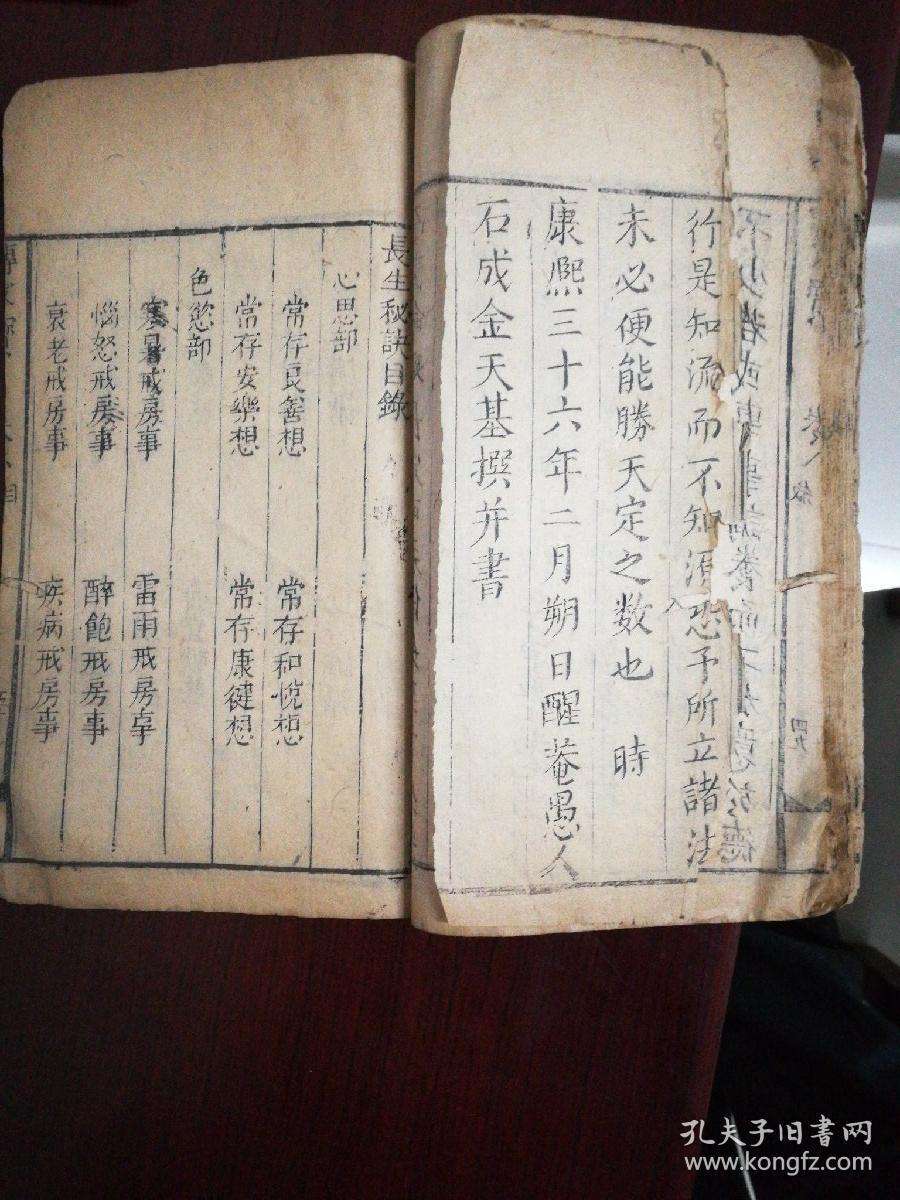 行是知流而不知源恐予所立諸法
未必便能勝天定之数也 時
康熙三十六年二月朔日醒菴愚人
石成金天基撰并書
長生秘訣目錄
心思部
常存良善想 常存和悅想
常存安樂想 常存康健想
色慾部
寒暑戒房事 雷雨戒房事
惱怒戒房事 醉飽戒房事
衰老戒房事 疾病戒房事
孔夫子旧书网
www.kongfz.com